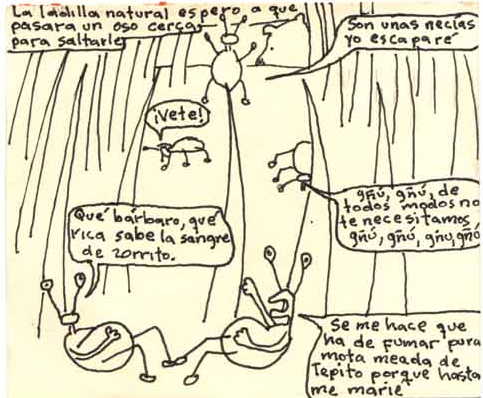 La ladilla natural espero a que
pasara un oso cerca
para saltarle
Son unas necias
yo escaparé
¡Vete!
gñú, gñú, de
todos modos no
te necesitamos,
gñú, gñú, gñú, gñú
Qué bárbaro, qué
rica sabe la sangre
de zorrito.
Se me hace que
ha de fumar pura
mota meada de
Tepito porque hasta
me marié